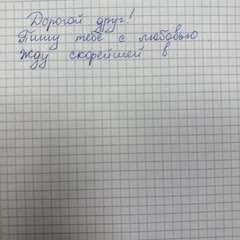 Дорогой друг!
Пишу тебе с любовью
Жду скорейшей в